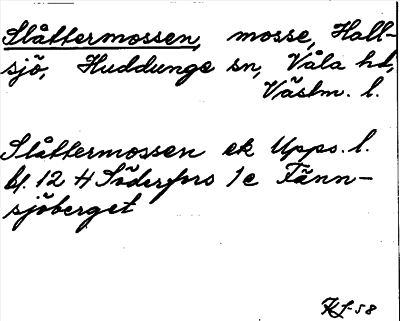 Slåttermossen, mosse, Hall-
sjö, Huddunge sn, Våla hd,
Västm. l.
Slåttermossen ek Upps. l.
bl. 12 H Söderfors 1c Tänn-
sjöberget